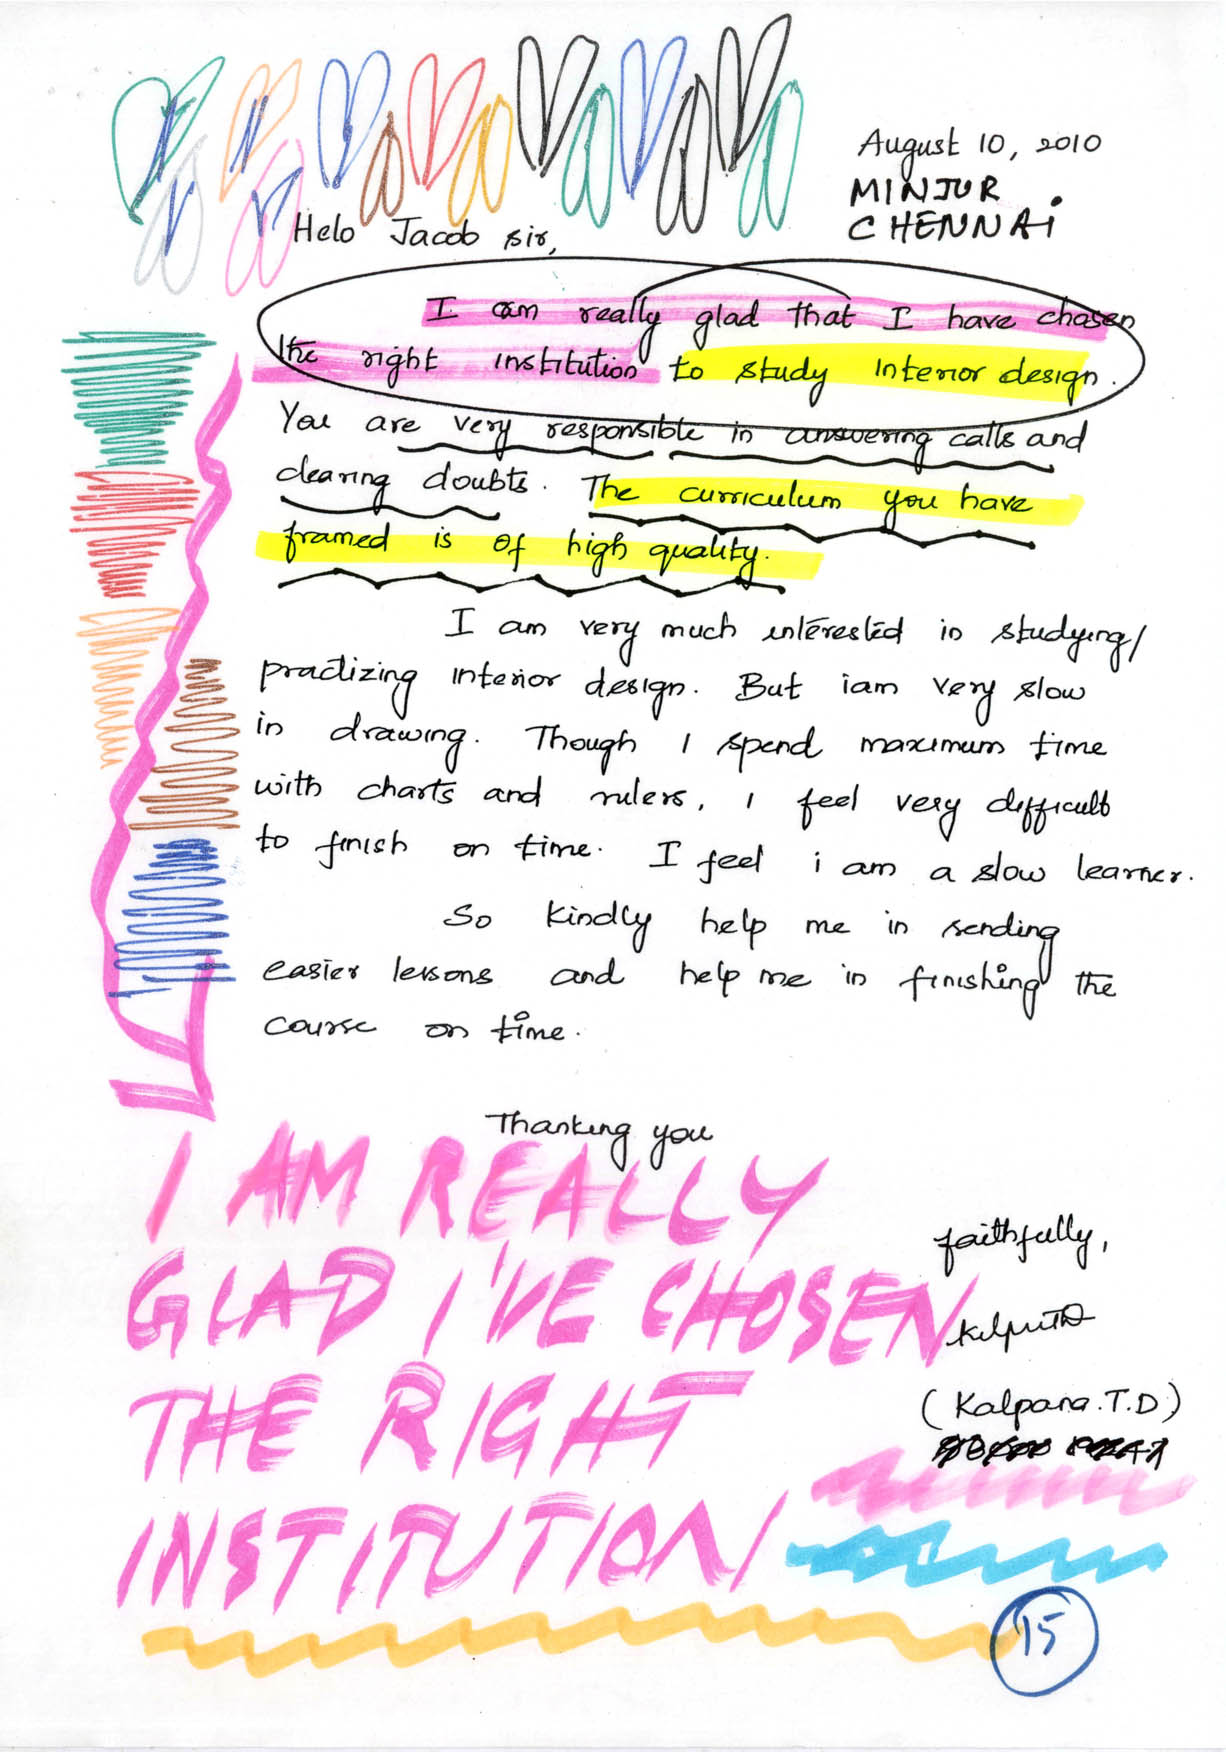 August 10, 2010
MINJUR
CHENNAi
Helo Jacob sir,
I am really glad that I have chosen
the right institution to study interior design.
You are very responsible in answering calls and
clearing doubts. The curriculum you have
framed is of high quality.
I am very much interested in studying/
practizing interior design. But iam very slow
in drawing. Though I spend maximum time
with charts and rulers, I feel very difficult
to finish on time. I feel i am a slow learner.
So kindly help me in sending
easier lessons and help me in finishing the
course on time.
Thanking you
I AM REALLY
GLAD I'VE CHOSEN
THE RIGHT
INSTITUTION
faithfully,
(Kalpana.T.D)
15